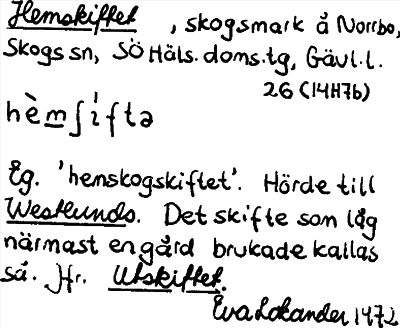 Hemskiftet, skogsmark å Norrbo,
Skogs sn, SÖ Häls. doms.tg, Gävl.l.
26 (14H7b)
hèm̲ʃìftə
Eg. 'hemskogskiftet'. Hörde till
Westlunds. Det skifte som låg
närmast en gård brukade kallas
så. Jfr. Utskiftet.
Eva Lokander 1972